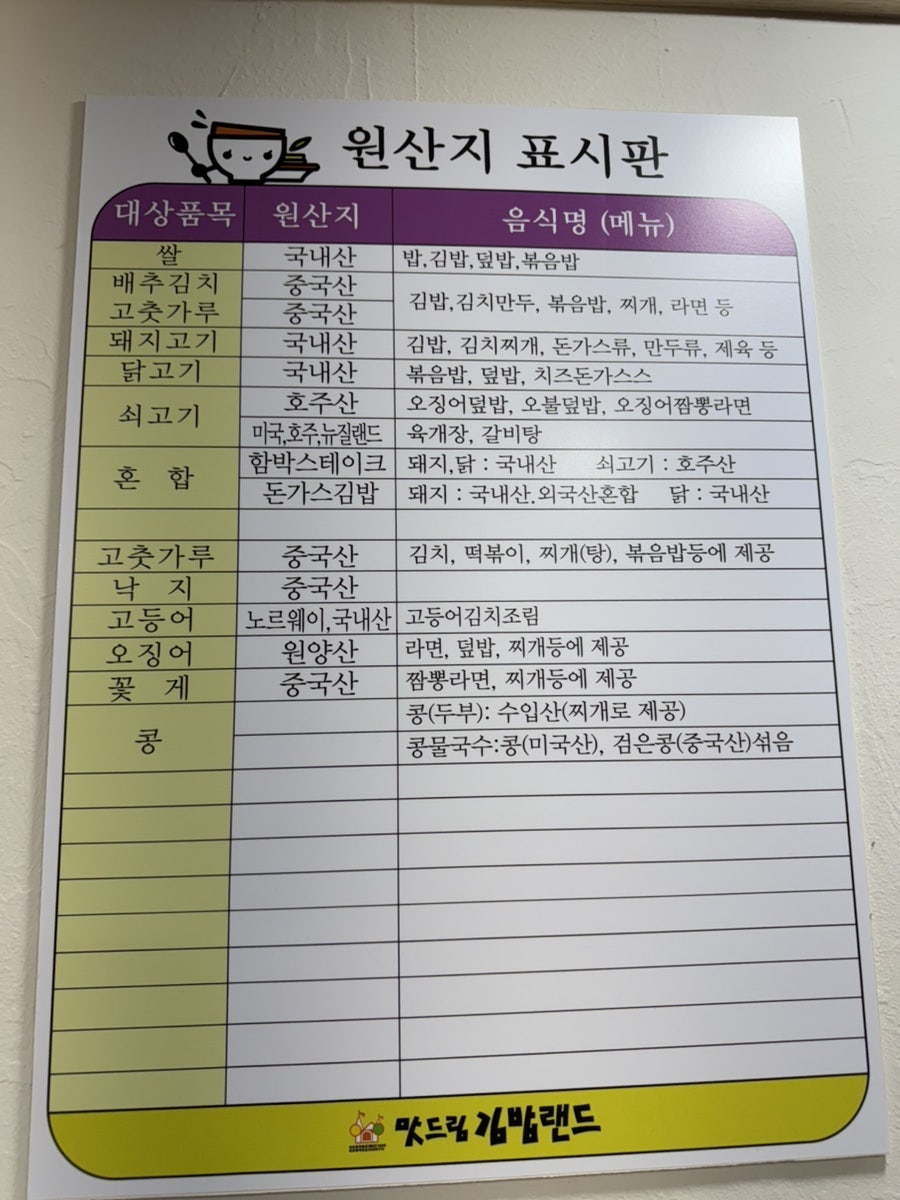 원산지 표시판
대상품목 원산지 음식명 (메뉴)
쌀 국내산 밥,김밥,덮밥,볶음밥
배추김치 중국산 김밥,김치만두, 볶음밥, 찌개, 라면 등
고춧가루 중국산
돼지고기 국내산 김밥, 김치찌개, 돈가스류, 만두류, 제육 등
닭고기 국내산 볶음밥, 덮밥, 치즈돈가스스
쇠고기 호주산 오징어덮밥, 오불덮밥, 오징어짬뽕라면
미국,호주,뉴질랜드 육개장, 갈비탕
혼 합 함박스테이크 돼지,닭 : 국내산 쇠고기 : 호주산
돈가스김밥 돼지 : 국내산.외국산혼합 닭 : 국내산
고춧가루 중국산 김치, 떡볶이, 찌개(탕), 볶음밥등에 제공
낙 지 중국산
고등어 노르웨이,국내산 고등어김치조림
오징어 원양산 라면, 덮밥, 찌개등에 제공
꽃 게 중국산 짬뽕라면, 찌개등에 제공
콩 콩(두부): 수입산(찌개로 제공)
콩물국수:콩(미국산), 검은콩(중국산)섞음
맛드림 김밥랜드